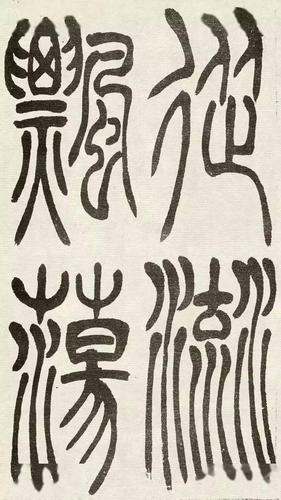 從流
飄蕩